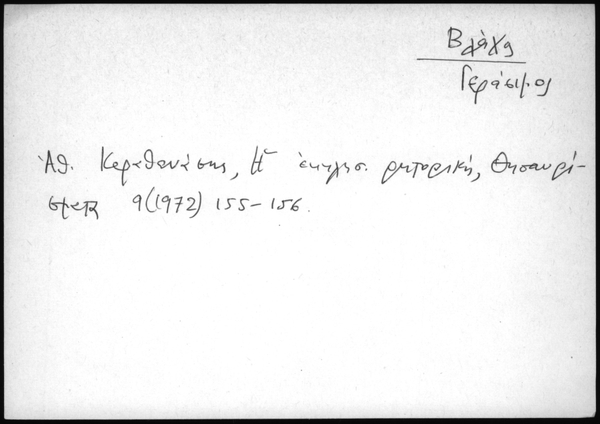 Βλάχος
Γεράσιμος
Ἀθ. Καραθανάσης, Ἡ ἐκκλησ. ρητορική, Θησαυρί-
σματα 9(1972) 155-156.